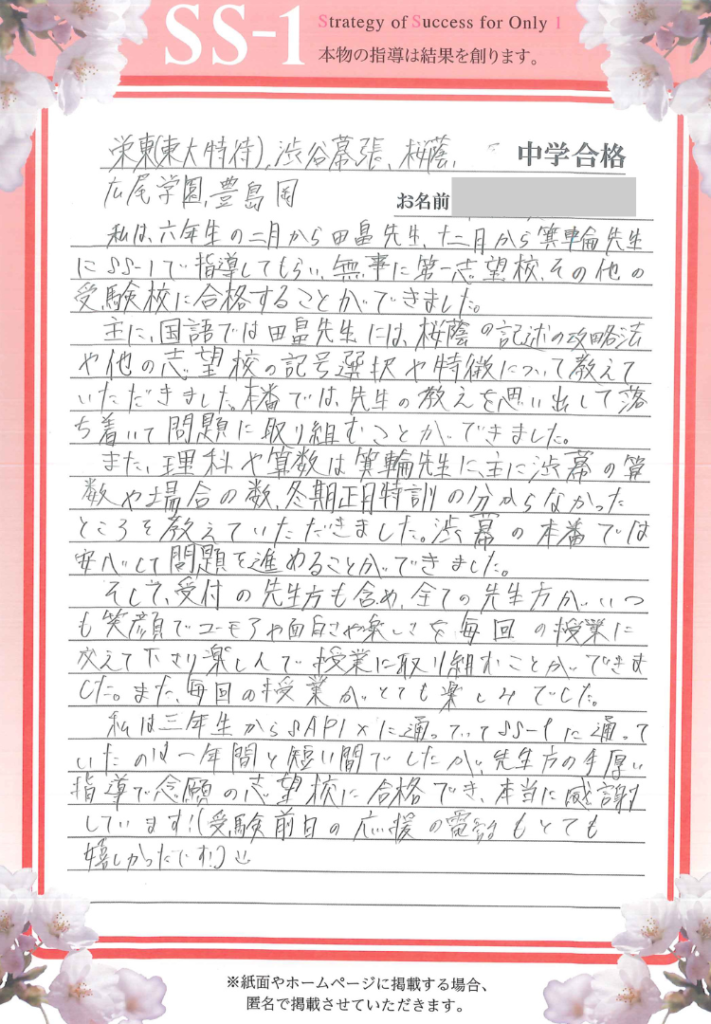 SS-1
Strategy of Success for Only 1
本物の指導は結果を創ります。
栄東(東大特待)、渋谷幕張、桜蔭、
中学合格
広尾学園、豊島岡
お名前
私は、六年生の二月から田畠先生、十二月から箕輪先生
にSS-1で指導してもらい、無事に第一志望校、その他の
受験校に合格することができました。
主に、国語では田畠先生には、桜蔭の記述の攻略法
や他の志望校の記号選択や特徴について教えて
いただきました。本番では、先生の教えを思い出して落
ち着いて問題に取り組むことができました。
また、理科や算数は箕輪先生に、主に渋幕の算
数や場合の数、冬期正月特訓の分からなかった
ところを教えていただきました。渋幕の本番では
安心して問題を進めることができました。
そして、受付の先生方も含め、全ての先生方が、いつ
も笑顔でユーモアや面白さや楽しさを毎回の授業に
交えて下さり楽しんで授業に取り組むことができま
した。また、毎回の授業がとても楽しみでした。
私は三年生からSAPIXに通っていてSS-1に通って
いたのは一年間と短い間でしたが、先生方の手厚い
指導で念願の志望校に合格でき、本当に感謝
しています!(受験前日の応援の電話もとても
嬉しかったです!)
※紙面やホームページに掲載する場合、
匿名で掲載させていただきます。